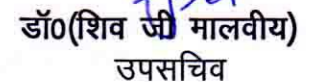 डॉ0(शिव जी मालवीय)
उपसचिव